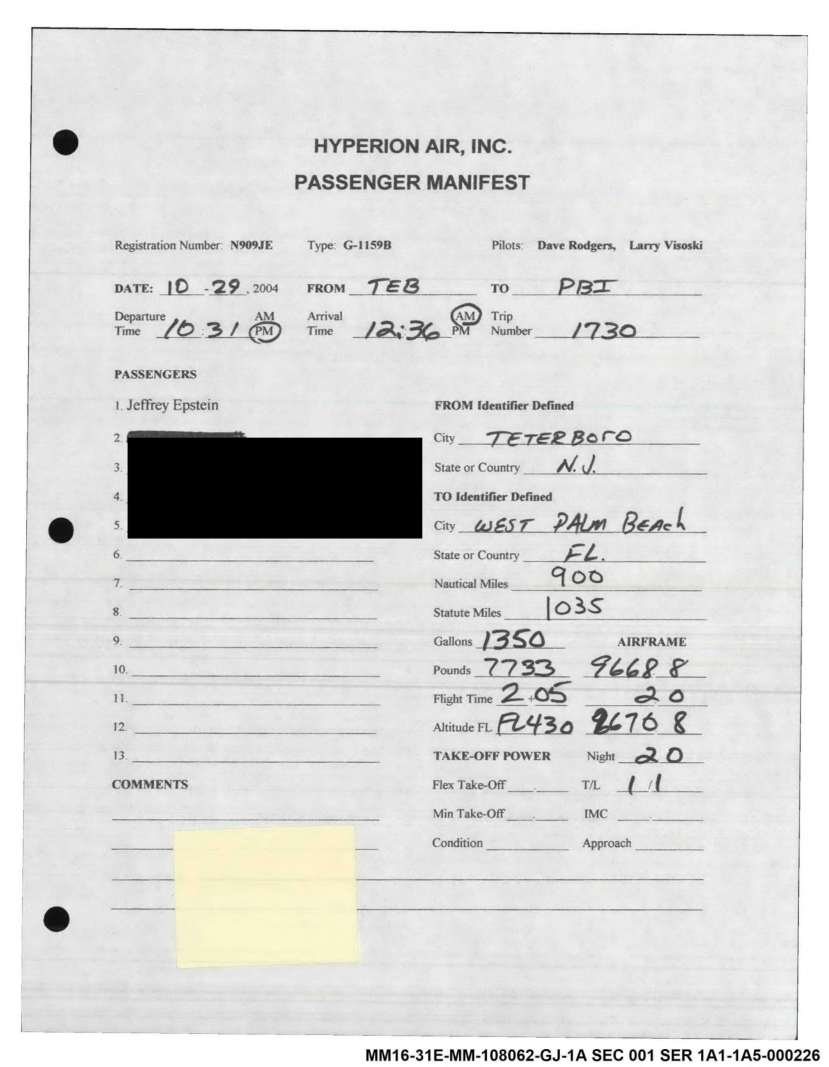 HYPERION AIR, INC.
PASSENGER MANIFEST
Registration Number: N909JE Type: G-1159B Pilots: Dave Rodgers, Larry Visoski
DATE: 10 - 29, 2004 FROM TEB TO PBI
Departure Time 10:31 AM PM Arrival Time 12:36 AM PM Trip Number 1730
PASSENGERS
1. Jeffrey Epstein FROM Identifier Defined
2. City TETERBORO
3. State or Country N.J.
4. TO Identifier Defined
5. City WEST PALM BEAch
6. State or Country FL.
7. Nautical Miles 900
8. Statute Miles 1035
9. Gallons 1350 AIRFRAME
10. Pounds 7733 9668 8
11. Flight Time 2+05 2 0
12. Altitude FL FL430 9670 8
13. TAKE-OFF POWER Night 2 0
COMMENTS Flex Take-Off . T/L 1 / 1
Min Take-Off . IMC .
Condition Approach
MM16-31E-MM-108062-GJ-1A SEC 001 SER 1A1-1A5-000226